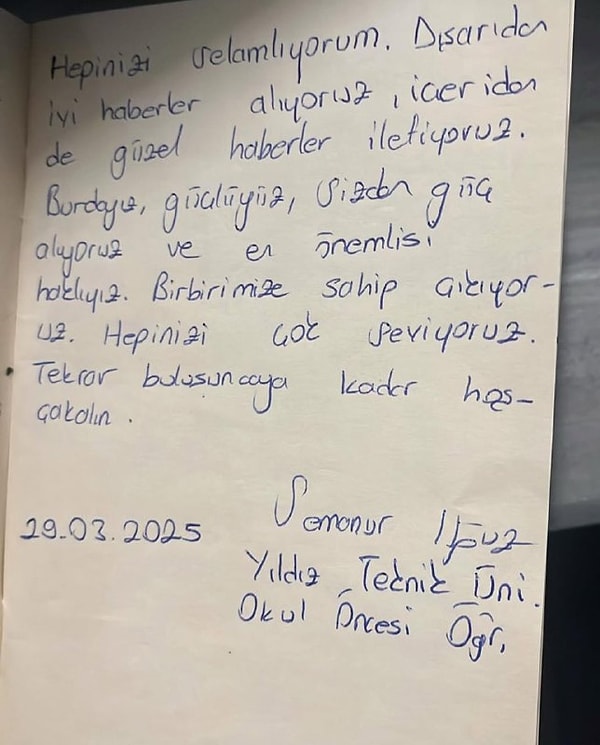 Hepinizi selamlıyorum. Dışarıdan
iyi haberler alıyoruz, içeriden
de güzel haberler iletiyoruz.
Burdayız, güçlüyüz, sizden güç
alıyoruz ve en önemlisi
haklıyız. Birbirimize sahip çıkıyor-
uz. Hepinizi çok seviyoruz.
Tekrar buluşuncaya kadar hoş-
çakalın.
29.03.2025
Semanur
Yıldız Teknik Üni.
Okul Öncesi Öğr.